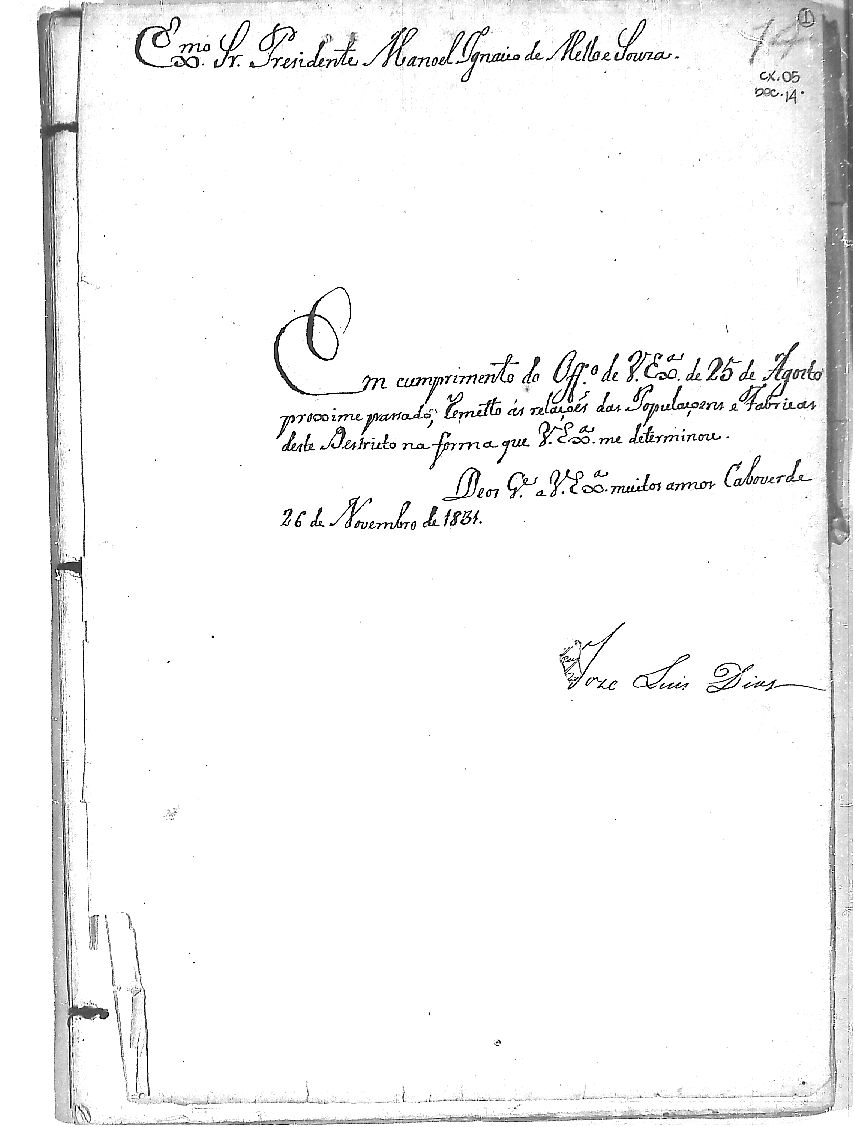 Exmo. Sr. Presidente Manoel Ignacio de Mello e Souza.
1
14
cx.05
Doc.14.
Em cumprimento do Off.º de V.Exª. de 25 de Agosto
proximo passado, remetto ás relações das Populaçoens e Fabricas
deste Destricto na forma que V.Exª. me determinou.
Deos G.e a V.Exª. muitos annos Caboverde
26 de Novembro de 1831.
Joze Luis Dias